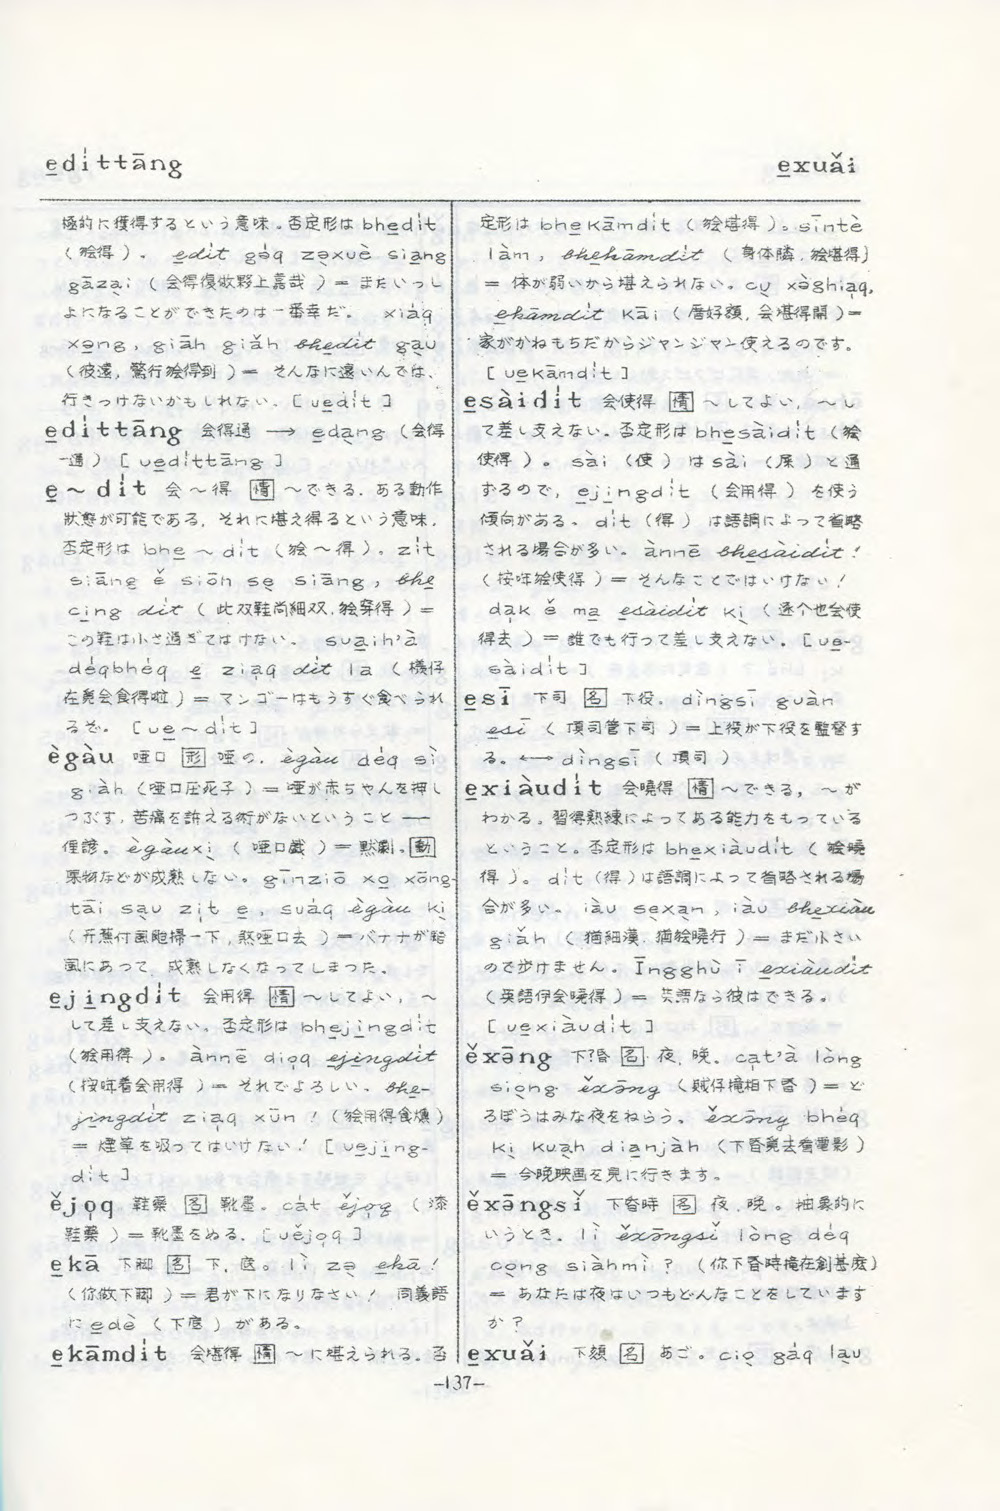 edi̍ttāng
exuǎi
極的に獲得するという意味。否定形は bhedi̍t
(獪得)。 edi̍t gə̍q zə̣xuè siang
gāzại (会得復做夥上嘉哉) = またいっし
ょになることができたのは一番幸だ。 xiáq
xə̄ng, giāh giǎh bhedi̍t gạu
(彼遠, 驚行獪得到) = そんなに遠いんでは、
行きつけないかもしれない。[ụedi̍t]
edi̍ttāng 会得通 → edạng (会得
通) [ụedi̍ttāng]
e~di̍t 会~得 [情] ~できる. ある動作
狀態が可能である, それに堪え得るという意味.
否定形は bhe ~ di̍t (獪~得)。 zi̍t
siāng ě siōh sẹ siāng, bhe
cing di̍t (此双鞋尚細双, 獪穿得) =
この鞋は小さ過ぎてはけない。 suaih'à
déqbhéq e ziạq di̍t la (檨仔
在要会食得啦) = マンゴーはもうすぐ食べられ
るぞ。 [ụe~di̍t]
ègàu 啞口 [形] 啞の. ègàu déq sì
giàh (啞口压死子) = 啞が赤ちゃんを押し
つぶす, 苦痛を訴える術がないということ ——
俚諺。 ègàuxì (啞口戲) = 黙劇。[動]
果物などが成熟しない。 gīnziō xọ xōng
tāi sạu zi̍t e, suáq ègàu kị
(芎蕉付風颱掃一下, 煞啞口去) = バナナが颱
風にあって, 成熟しなくなってしまった。
ejingdi̍t 会用得 [情] ~してよい, ~
して差し支えない。否定形は bhejingdi̍t
(獪用得)。 ànnē diọq ejingdi̍t
(按哖着会用得) = それでよろしい。 bhe-
jingdi̍t ziạq xūn ! (獪用得食燻)
= 煙草を吸ってはいけない! [ụejing-
di̍t]
ějọq 鞋藥 [名] 靴墨。 cát ějọq (漆
鞋藥) = 靴墨をぬる. [ụějọq]
ekā 下脚 [名] 下, 底。 lì zə̣ ekā !
(你做下脚) = 君が下になりなさい! 同義語
に edè (下底) がある。
ekāmdi̍t 会堪得 [情] ~に堪えられる. 否
定形は bhekāmdi̍t (獪堪得)。 sīntè
làm, bhekāmdi̍t (身体𦟪, 獪堪得)
= 体が弱いから堪えられない。 cụ xə̀ghiạq,
ekāmdi̍t kāi (厝好額, 会堪得開) =
家がかねもちだからジャンジャン使えるのです。
[ụekāmdi̍t]
esàidi̍t 会使得 [情] ~してよい, ~し
て差し支えない。否定形は bhesàidi̍t (獪
使得)。 sài (使) は sài (屎) と通
ずるので, ejingdi̍t (会用得) を使う
傾向がある。 di̍t (得) は語調によって省略
される場合が多い。 ànnē bhesàidi̍t !
(按哖獪使得) = そんなことではいけない!
dạk ě mạ esàidi̍t kị (逐个也会使
得去) = 誰でも行って差し支えない。 [ụe-
sàidi̍t]
esī 下司 [名] 下役. dìngsī guàn
esī (頂司管下司) = 上役が下役を監督す
る。 ←→ dìngsī (頂司)
exiàudi̍t 会曉得 [情] ~できる, ~が
わかる。習得熟練によってある能力をもっている
ということ。否定形は bhexiàudi̍t (獪曉
得)。 di̍t (得) は語調によって省略される場
合が多い。 iàu sẹxạn, iàu bhexiàu
giǎh (猶細漢, 猶獪曉行) = まだ小さい
ので歩けません。 Īngghù ī exiàudi̍t
(英語伊会曉得) = 英語なら彼はできる。
[ụexiàudi̍t]
ěxə̄ng 下昏 [名] 夜, 晚. cạt'à lòng
siọng ěxə̄ng (賊仔攏相下昏) = ど
ろぼうはみな夜をねらう。 ěxə̄ng bhéq
kị kụạh diạnjàh (下昏要去看電影)
= 今晚映画を見に行きます。
ěxāngsǐ 下昏時 [名] 夜, 晚。抽象的に
いうとき。 lì ěxāngsǐ lòng déq
cọng siàhmì ? (你下昏時攏在創甚麽)
= あなたは夜はいつもどんなことをしています
か?
exuǎi 下頦 [名] あご。 ciọ gáq lạu
-137-